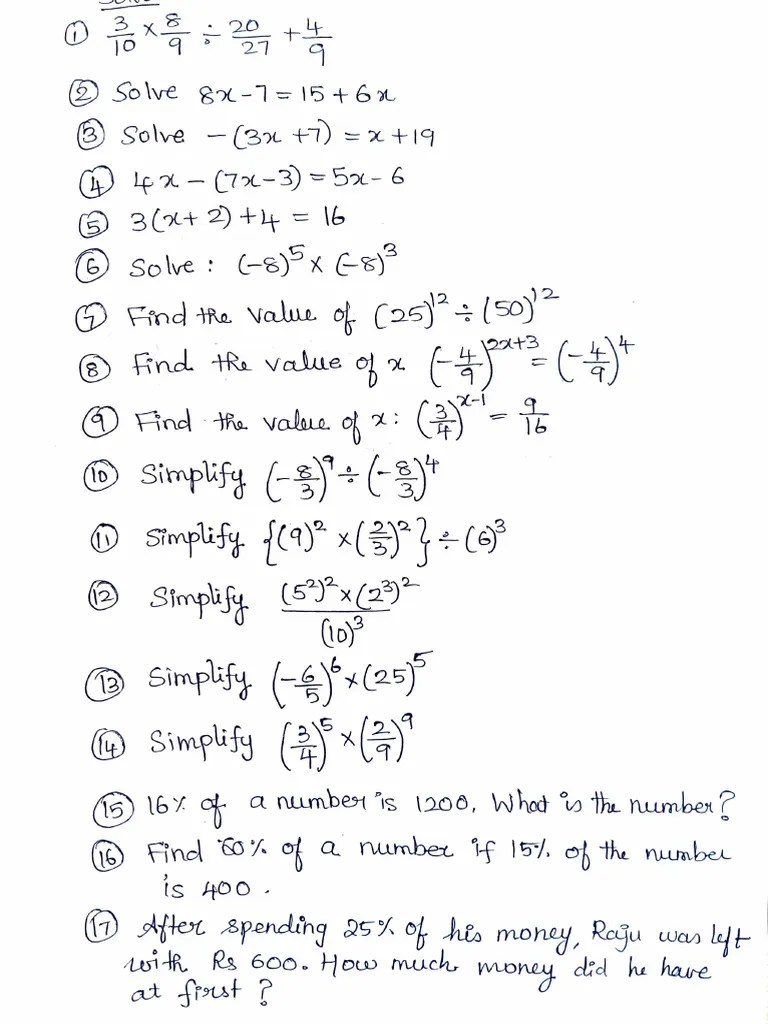 Solve
① 3/10 × 8/9 ÷ 20/27 + 4/9
② Solve 8x - 7 = 15 + 6x
③ Solve - (3x + 7) = x + 19
④ 4x - (7x - 3) = 5x - 6
⑤ 3(x + 2) + 4 = 16
⑥ Solve : (-8)⁵ × (-8)³
⑦ Find the value of (25)¹² ÷ (50)¹²
⑧ Find the value of x (-4/9)^(2x+3) = (-4/9)⁴
⑨ Find the value of x : (3/4)^(x-1) = 9/16
⑩ Simplify (-8/3)⁹ ÷ (-8/3)⁴
⑪ Simplify {(9)² × (2/3)²} ÷ (6)³
⑫ Simplify (5²)² × (2³)² / (10)³
⑬ Simplify (-6/5)⁶ × (25)⁵
⑭ Simplify (3/4)⁵ × (2/9)⁹
⑮ 16% of a number is 1200. What is the number?
⑯ Find 60% of a number if 15% of the number
is 400.
⑰ After spending 25% of his money, Raju was left
with Rs 600. How much money did he have
at first ?